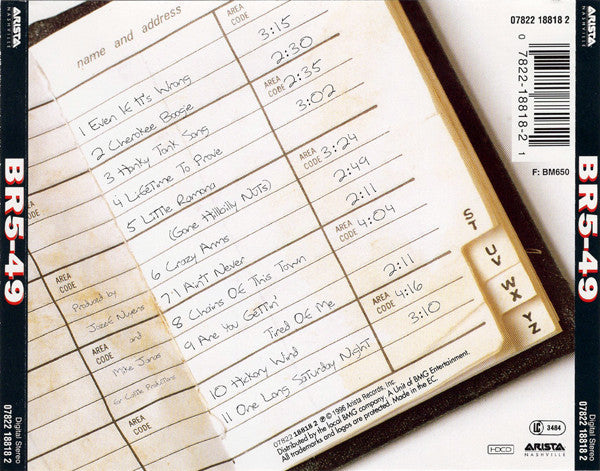 ARISTA
NASHVILLE
BR5-49
Digital Stereo
07822 18818 2
name and address
AREA
CODE
1 Even If It's Wrong 3:15
2 Cherokee Boogie 2:30
AREA
CODE
3 Honky Tonk Song 2:35
4 Lifetime To Prove 3:02
5 Little Ramona
(Gone Hillbilly Nuts) 3:24
AREA
CODE
6 Crazy Arms 2:49
7 I Ain't Never 2:11
AREA
CODE
8 Chains Of This Town 4:04
9 Are You Gettin'
Tired Of Me 2:11
10 Hickory Wind 4:16
AREA
CODE
11 One Long Saturday Night 3:10
AREA
CODE
Produced by
Jozef Nuyens
AREA
CODE
and
Mike Janas
for Castle Productions
AREA
CODE
ST
UV
WX
YZ
07822 18818 2 ℗ © 1996 Arista Records, Inc.
Distributed by the local BMG company. A Unit of BMG Entertainment.
All trademarks and logos are protected. Made in the EC.
07822 18818 2
0 7822-18818-2 1
F: BM650
LC 3484
HDCD
ARISTA
NASHVILLE
ARISTA
NASHVILLE
BR5-49
Digital Stereo
07822 18818 2